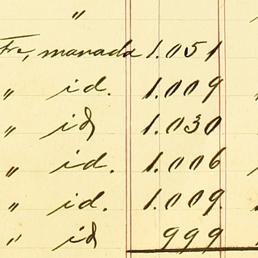 "
Fr, manada 1.051
" id. 1.009
" id 1.030
" id. 1.006
" id. 1.009.
" id 999